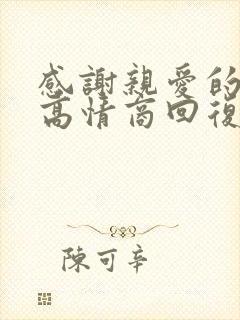 感謝親愛的
高情商回復
陳可辛